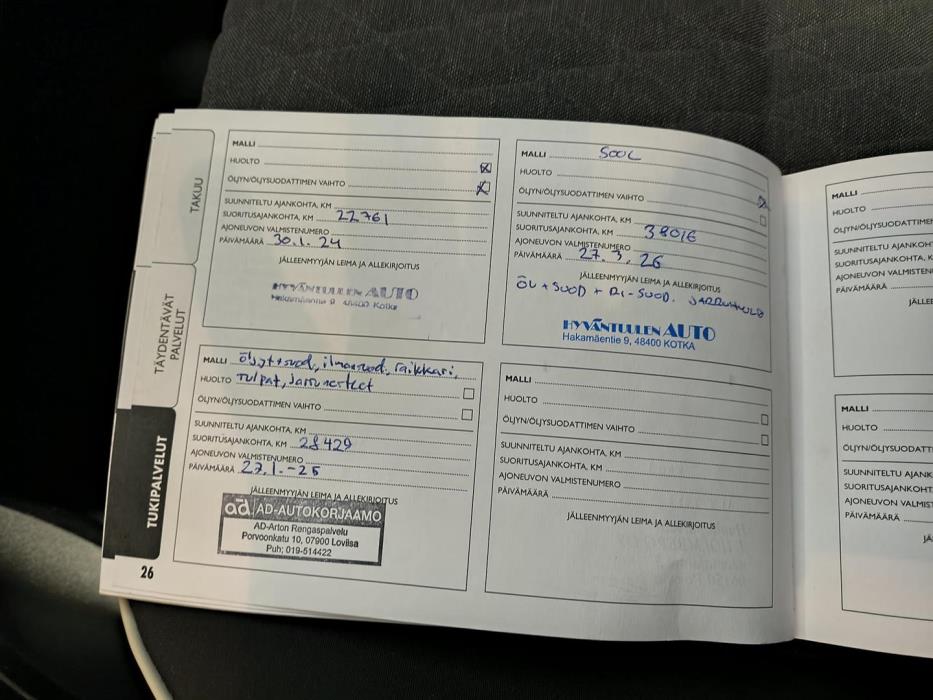 TAKUU
TÄYDENTÄVÄT
PALVELUT
TUKIPALVELUT
26
MALLI
HUOLTO
ÖLJYN/ÖLJYSUODATTIMEN VAIHTO
SUUNNITELTU AJANKOHTA, KM
SUORITUSAJANKOHTA, KM 22761
AJONEUVON VALMISTENUMERO
PÄIVÄMÄÄRÄ 30.1.24
JÄLLEENMYYJÄN LEIMA JA ALLEKIRJOITUS
HYVÄNTUULEN AUTO
Hakamäentie 9 48400 Kotka
MALLI öljyt+suod, ilmansuod, raikkari,
HUOLTO Tulpat, Jarrunesteet
ÖLJYN/ÖLJYSUODATTIMEN VAIHTO
SUUNNITELTU AJANKOHTA, KM
SUORITUSAJANKOHTA, KM 28429
AJONEUVON VALMISTENUMERO
PÄIVÄMÄÄRÄ 27.1.-25
JÄLLEENMYYJÄN LEIMA JA ALLEKIRJOITUS
ad AD-AUTOKORJAAMO
AD-Arton Rengaspalvelu
Porvoonkatu 10, 07900 Loviisa
Puh; 019-514422
MALLI
HUOLTO
ÖLJYN/ÖLJYSUODATTIMEN VAIHTO
SUUNNITELTU AJANKOHTA, KM
SUORITUSAJANKOHTA, KM 38016
AJONEUVON VALMISTENUMERO
PÄIVÄMÄÄRÄ 27.3.26
JÄLLEENMYYJÄN LEIMA JA ALLEKIRJOITUS
ÖL + SUOD + RI-SUOD. JARRUHUOLTO
HYVÄNTUULEN AUTO
Hakamäentie 9, 48400 KOTKA
MALLI
HUOLTO
ÖLJYN/ÖLJYSUODATTIMEN VAIHTO
SUUNNITELTU AJANKOHTA, KM
SUORITUSAJANKOHTA, KM
AJONEUVON VALMISTENUMERO
PÄIVÄMÄÄRÄ
JÄLLEENMYYJÄN LEIMA JA ALLEKIRJOITUS
MALLI
HUOLTO
ÖLJYN/ÖLJYSUODATTIME
SUUNNITELTU AJANKOH
SUORITUSAJANKOHTA, K
AJONEUVON VALMISTEN
PÄIVÄMÄÄRÄ
JÄLLE
MALLI
HUOLTO
ÖLJYN/ÖLJYSUODATT
SUUNNITELTU AJANK
SUORITUSAJANKOHT
AJONEUVON VALMIST
PÄIVÄMÄÄRÄ
JÄ